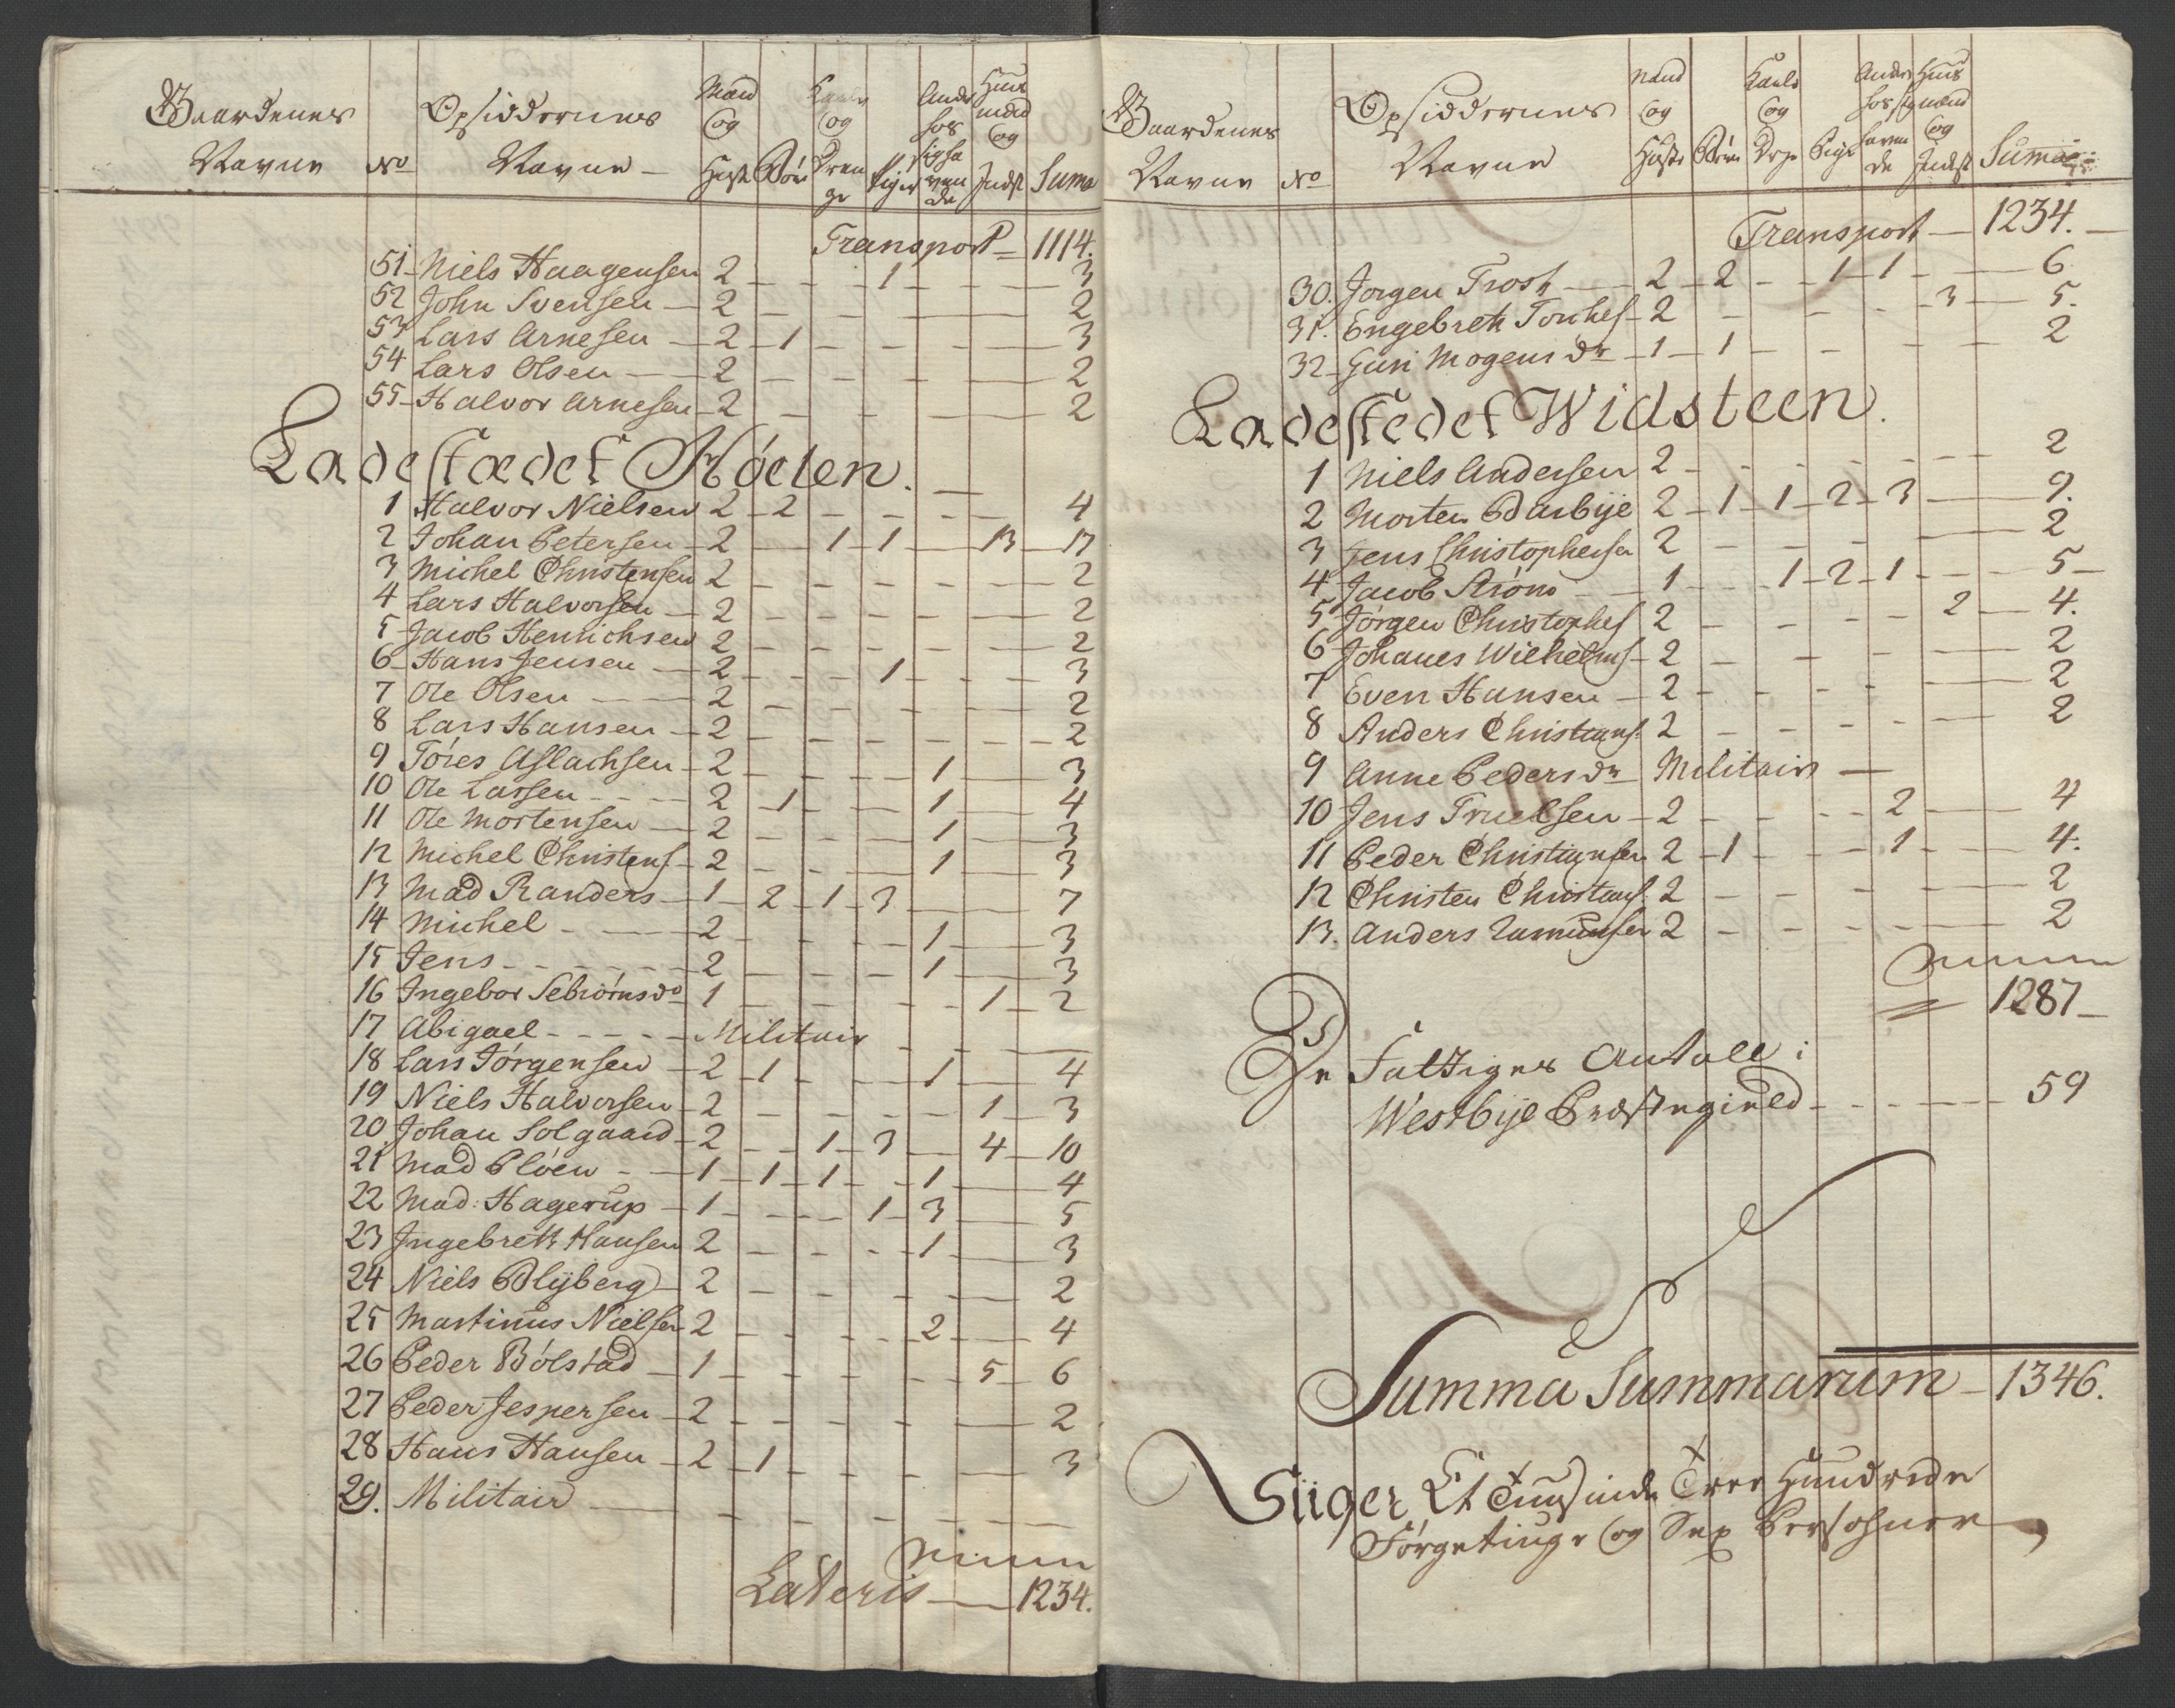 Gaardenes Opsiddernes Mand og Hust. Børn Karle og Drenge Piger Andre hos sig havende Huusmænd og Indst Suma
Navne No Navne
Transport 1114.
51 Niels Haagensen 2 - - - 1 - - - 3
52 John Svensen 2 - - - - 2
53 Lars Arnesen 2 1 - - - - 3
54 Lars Olsen 2 - - - - 2
55 Halvor Arnesen 2 - - - - 2
Ladestædet Hóelen.
1 Halvor Nielsen 2 2 - - - - 4
2 Johan Petersen 2 - 1 1 - 13 17
3 Michel Christensen 2 - - - - - 2
4 Lars Halvorsen 2 - - - - - 2
5 Jacob Henrichsen 2 - - - - - 2
6 Hans Jensen 2 - - 1 - - 3
7 Ole Olsen 2 - - - - - 2
8 Lars Hansen 2 - - - - - 2
9 Tóres Aslachsen 2 - - - 1 - 3
10 Ole Larsen 2 1 - - 1 - 4
11 Ole Mortensen 2 - - - 1 - 3
12 Michel Christens. 2 - - - 1 - 3
13 Mad Randers 1 2 1 3 - - 7
14 Michel 2 - - - 1 - 3
15 Jens 2 - - - 1 - 3
16 Ingebor Sebiórnsdr 1 - - - - 1 2
17 Abigael Militair - - -
18 Lars Jórgensen 2 1 - - 1 - 4
19 Niels Halvorsen 2 - - - - 1 3
20 Johan Solgaard 2 - 1 3 - 4 10
21 Mad Plóen 1 1 1 - 1 - 4
22 Mad: Hagerup 1 - - 1 3 - 5
23 Ingebrett Hansen 2 - - - 1 - 3
24 Niels Blyberg 2 - - - - - 2
25 Martinus Nielsen 2 - - - 2 - 4
26 Peder Bólstad 1 - - - - 5 6
27 Peder Jespersen 2 - - - - - 2
28 Hans Hansen 2 1 - - - - 3
29. Militair - - - - - -
Lateris 1234.
Gaardenes Opsiddernes Mand og Hustr Børn Karle og Drge Pige Andre hos sig havende Huusmænd og Indst Suma
Navne No Navne
Transport 1234.
30. Jorgen Trosh 2 2 - 1 1 - 6
31. Engebreth Torchels 2 - - - - 3 5.
32 Guri Mogens dr 1 1 - - - - 2
Ladestedet Widsteen.
1 Niels Andersen 2 - - - - - 2
2 Morten Barbye 2 1 1 2 3 - 9.
3 Jens Christophersen 2 - - - - - 2
4 Jacob Stróm 1 - 1 2 1 - 5
5 Jórgen Christophes 2 - - - - 2 4.
6 Johanes Wilhelms 2 - - - - - 2
7 Even Hansen 2 - - - - - 2
8 Anders Christians. 2 - - - - - 2
9 Anne Peders dr Militair
10 Jens Truelsen 2 - - - 2 - 4
11 Peder Christiansen 2 1 - - 1 - 4.
12 Christen Christians. 2 - - - - - 2
13. Anders Rasmussen 2 - - - - - 2
1287
De Fattiges Antall i
Westbye Præstegield 59
Summa Summarum 1346.
Siiger Et Tuusinde Tree Hundrede
Fórgetiuge og Sex Persohner